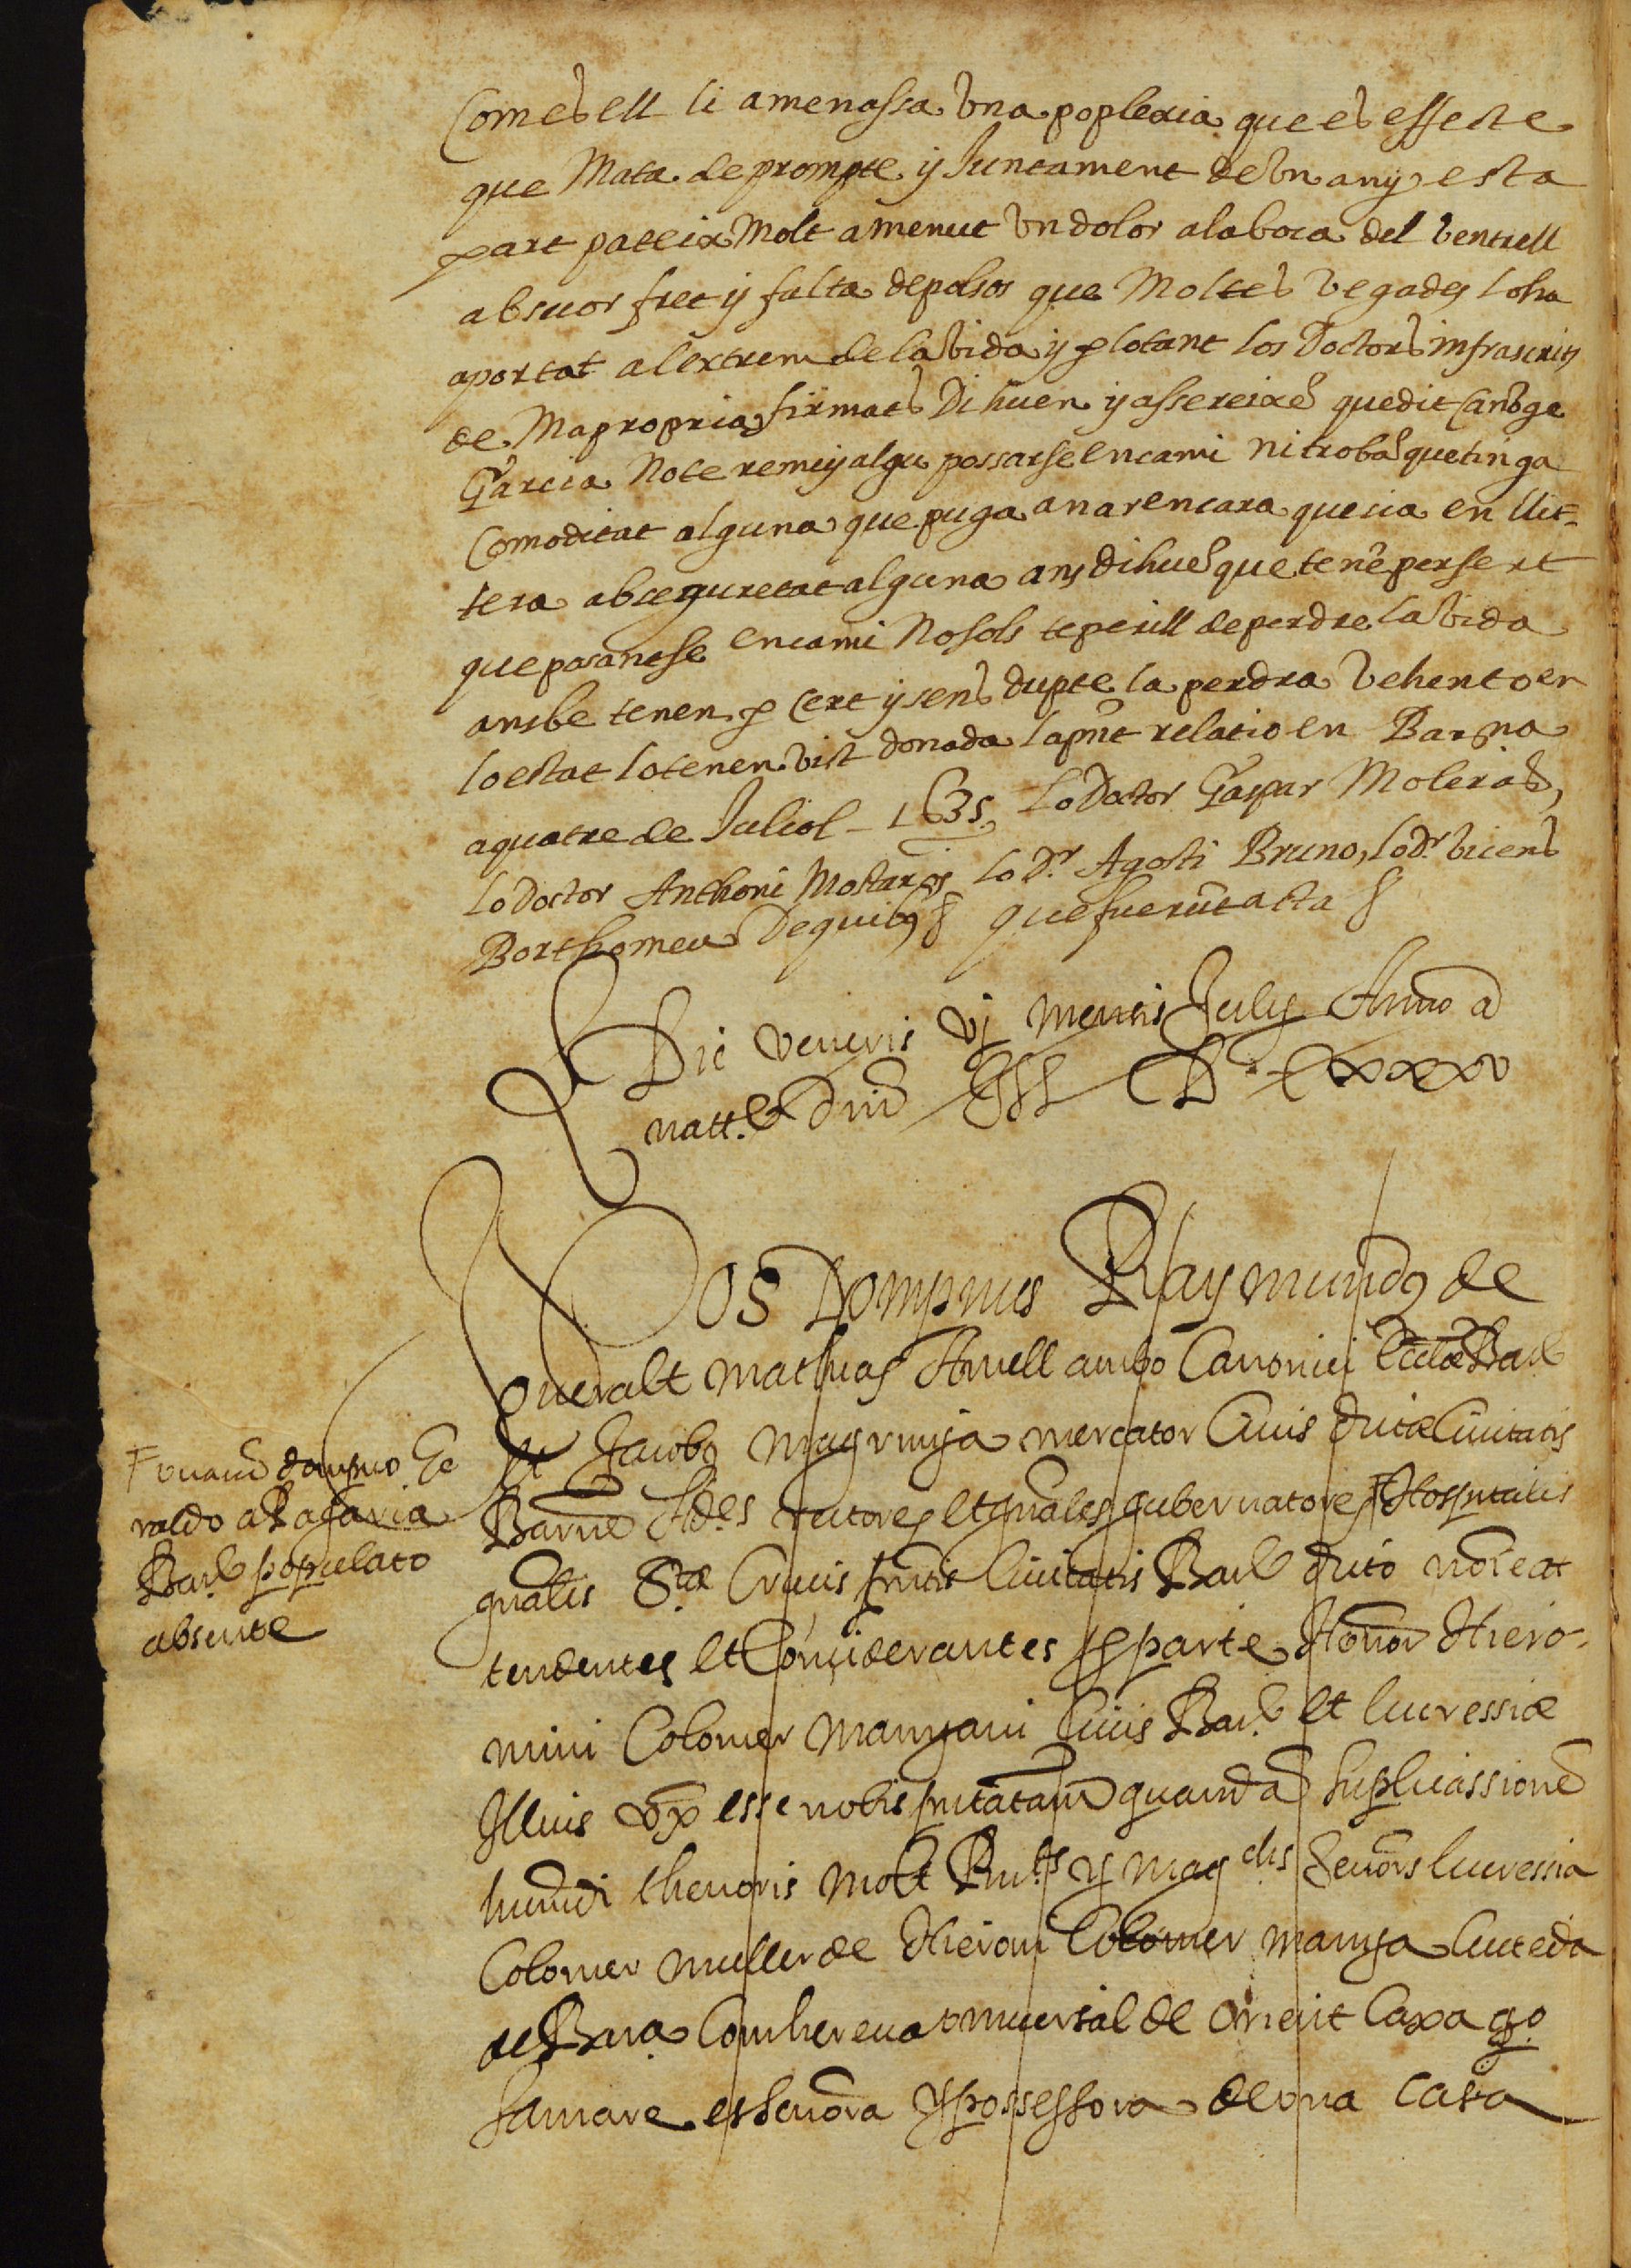 Com es ell li amenassa una poplexia que es effecte
que Mata de prompte y Juntament de un any esta
part pateix Molt a menut un dolor a la boca del ventrell
ab suor fret y falta de polsos que Moltes vegades lo ha
aportat al extrem de la vida y p lo tant los Doctors infrascrits
de Ma propria firmats Dihuen y assereixē que dit Canōge
Garcia No te remey algu possarse en cami ni trobā que tinga
Comoditat alguna que puga anar encara que sia en llit-
tera ab seguretat alguna ans dihuē que tenē per se rt
que posantse en cami No sols te perill de perdre la vida
ans be tenen p Cert y sens dupte la perdra vehent o en
lo estat lo tenen vist donada la pnt relatio en Barna
a quatre de Juliol - 1635, Lo Doctor Gaspar Moleras,
Lo Doctor Anthoni Mostaros Lo Dr. Agosti Bruno, lo dr. vicens
Borthomeu De quibus & que fuerūt acta &
Die veneris vj mensis July Anno a
natt.e Dni M DC xxxv
Nos Dompnus Raymundus de
Queralt Mathias Amell ambo Canonici Ecclæ Barc
Et Jacobus Magrinya mercator Civis dictæ Civitatis
Barne Ades rectores et gnales gubernatores Hospitalis
gnalis Stæ Crucis pntis Civitatis Barc dicto noīe at
tendentes et Considerantes p parte Honor Hiero-
nimi Colomer Manyani Civis Barc et lucressiæ
Illius ux esse nobis pntatam quandā suplicassionē
huiusmōdi thenoris Molt Rnts y Magchs Senōrs lucressia
Colomer muller de Hieroni Colomer manya Ciuteda
de Bara Com hereva universal de orient Caxa qo
sa mare es senōra y possessora de una casa
Fovand dompno Ge
raldo a Ragaria
Barc populato
absente